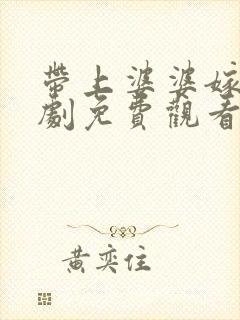 帶上婆婆嫁
劇免費觀看
黃奕住